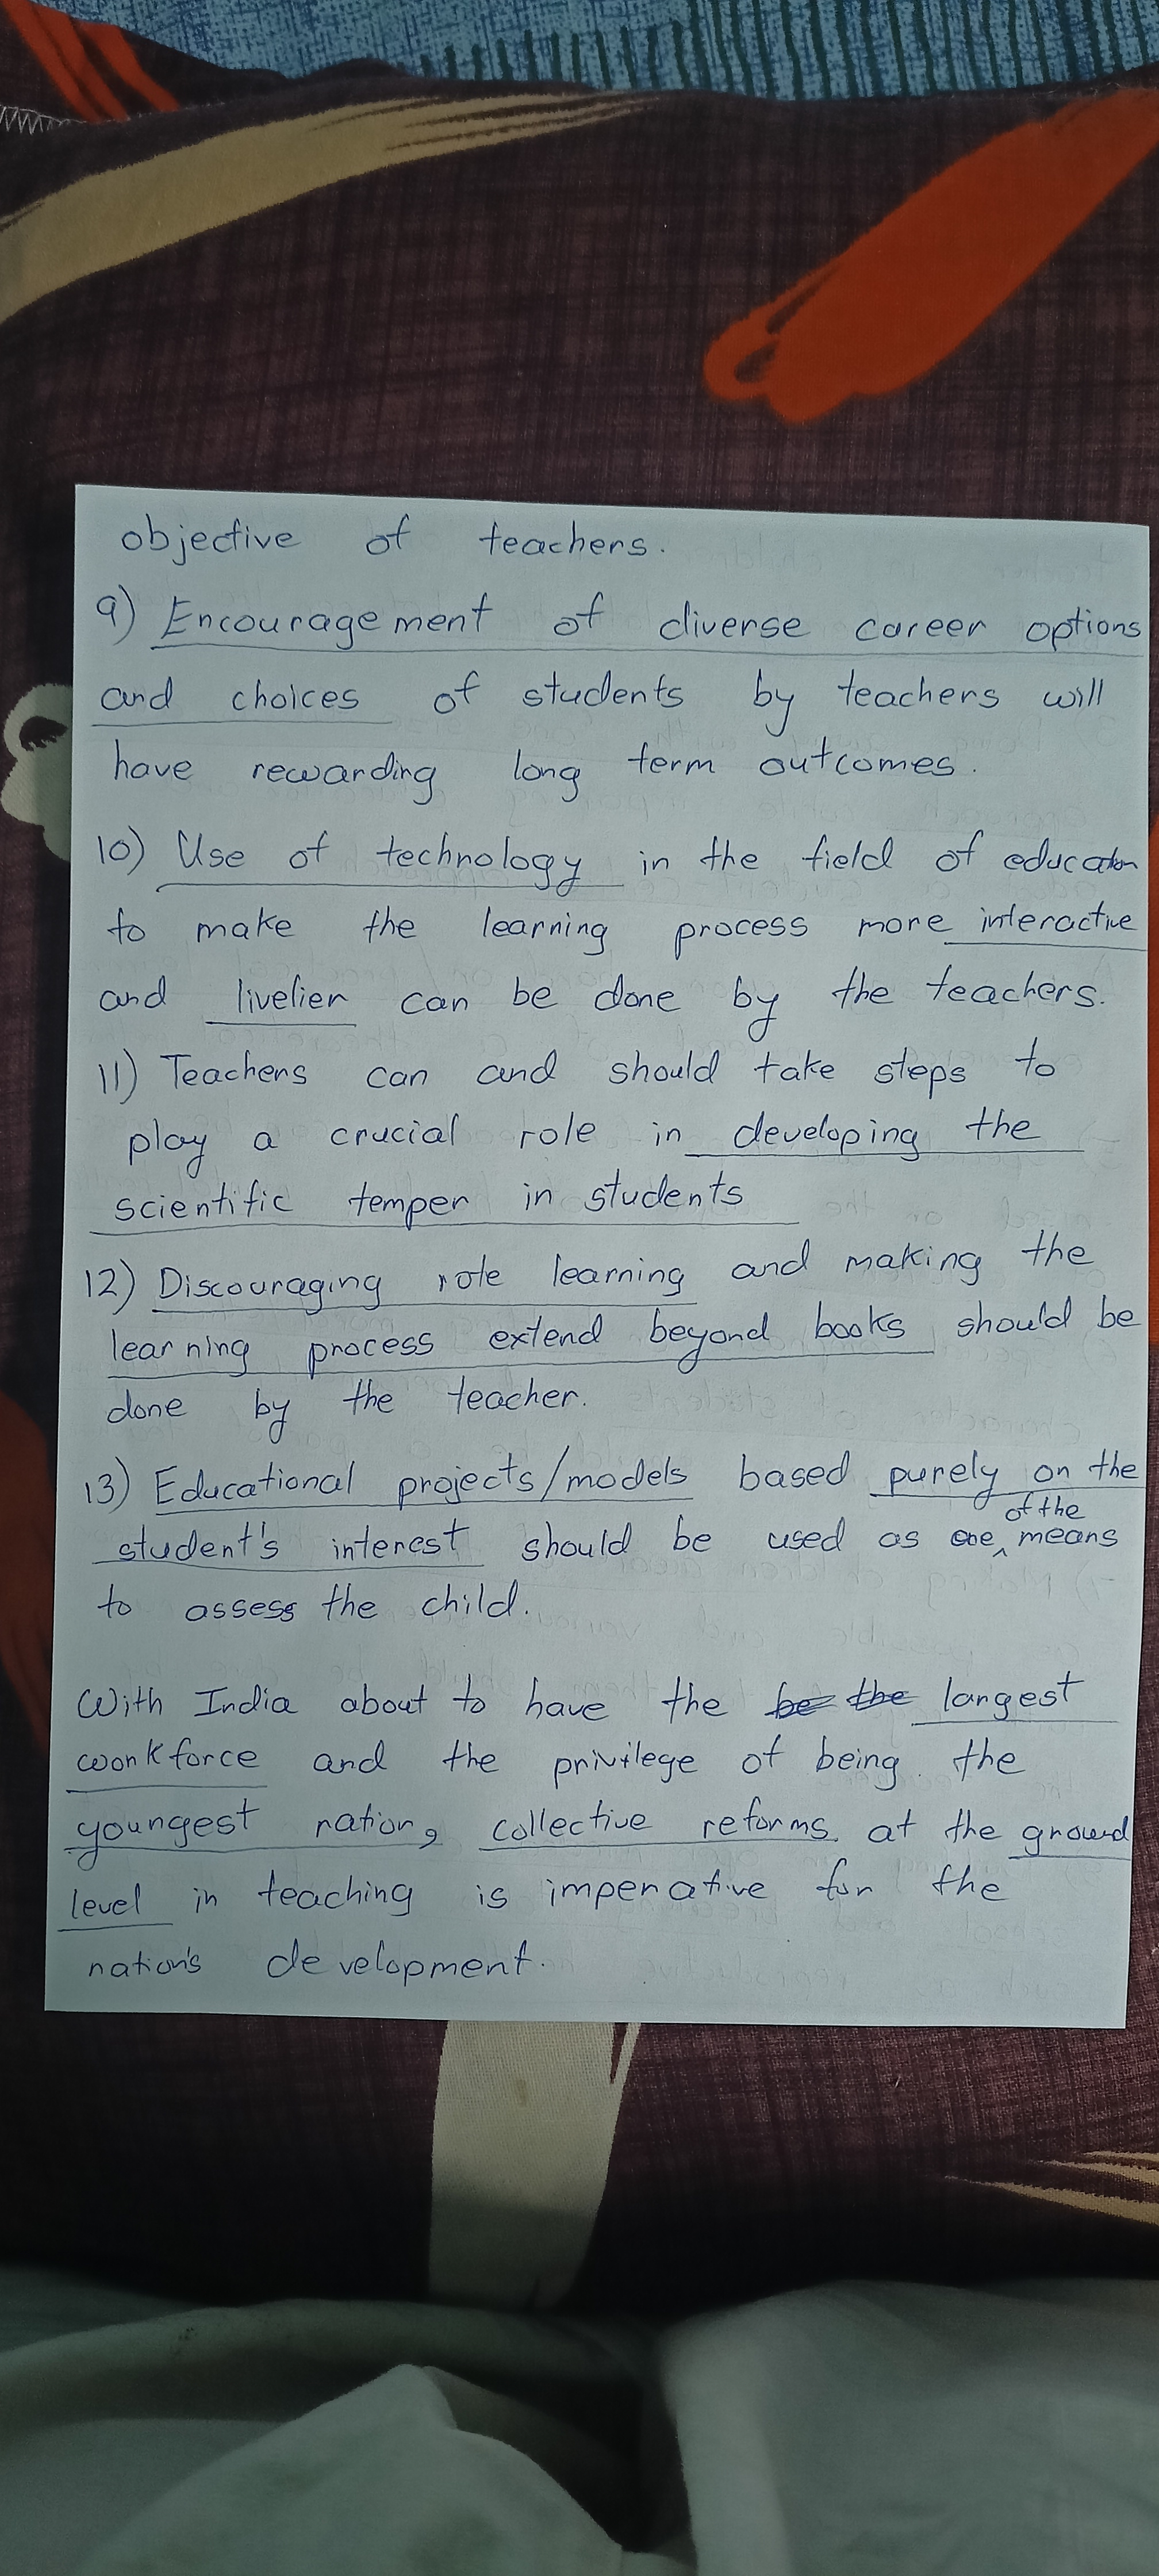 objective of teachers.
9) Encouragement of diverse career options
and choices of students by teachers will
have rewarding long term outcomes.
10) Use of technology in the field of education
to make the learning process more interactive
and livelier can be done by the teachers.
11) Teachers can and should take steps to
play a crucial role in developing the
scientific temper in students
12) Discouraging rote learning and making the
learning process extend beyond books should be
done by the teacher.
13) Educational projects/models based purely on the
student's interest should be used as one of the means
to assess the child.
With India about to have the be the largest
workforce and the privilege of being the
youngest nation, collective reforms at the ground
level in teaching is imperative for the
nation's development.